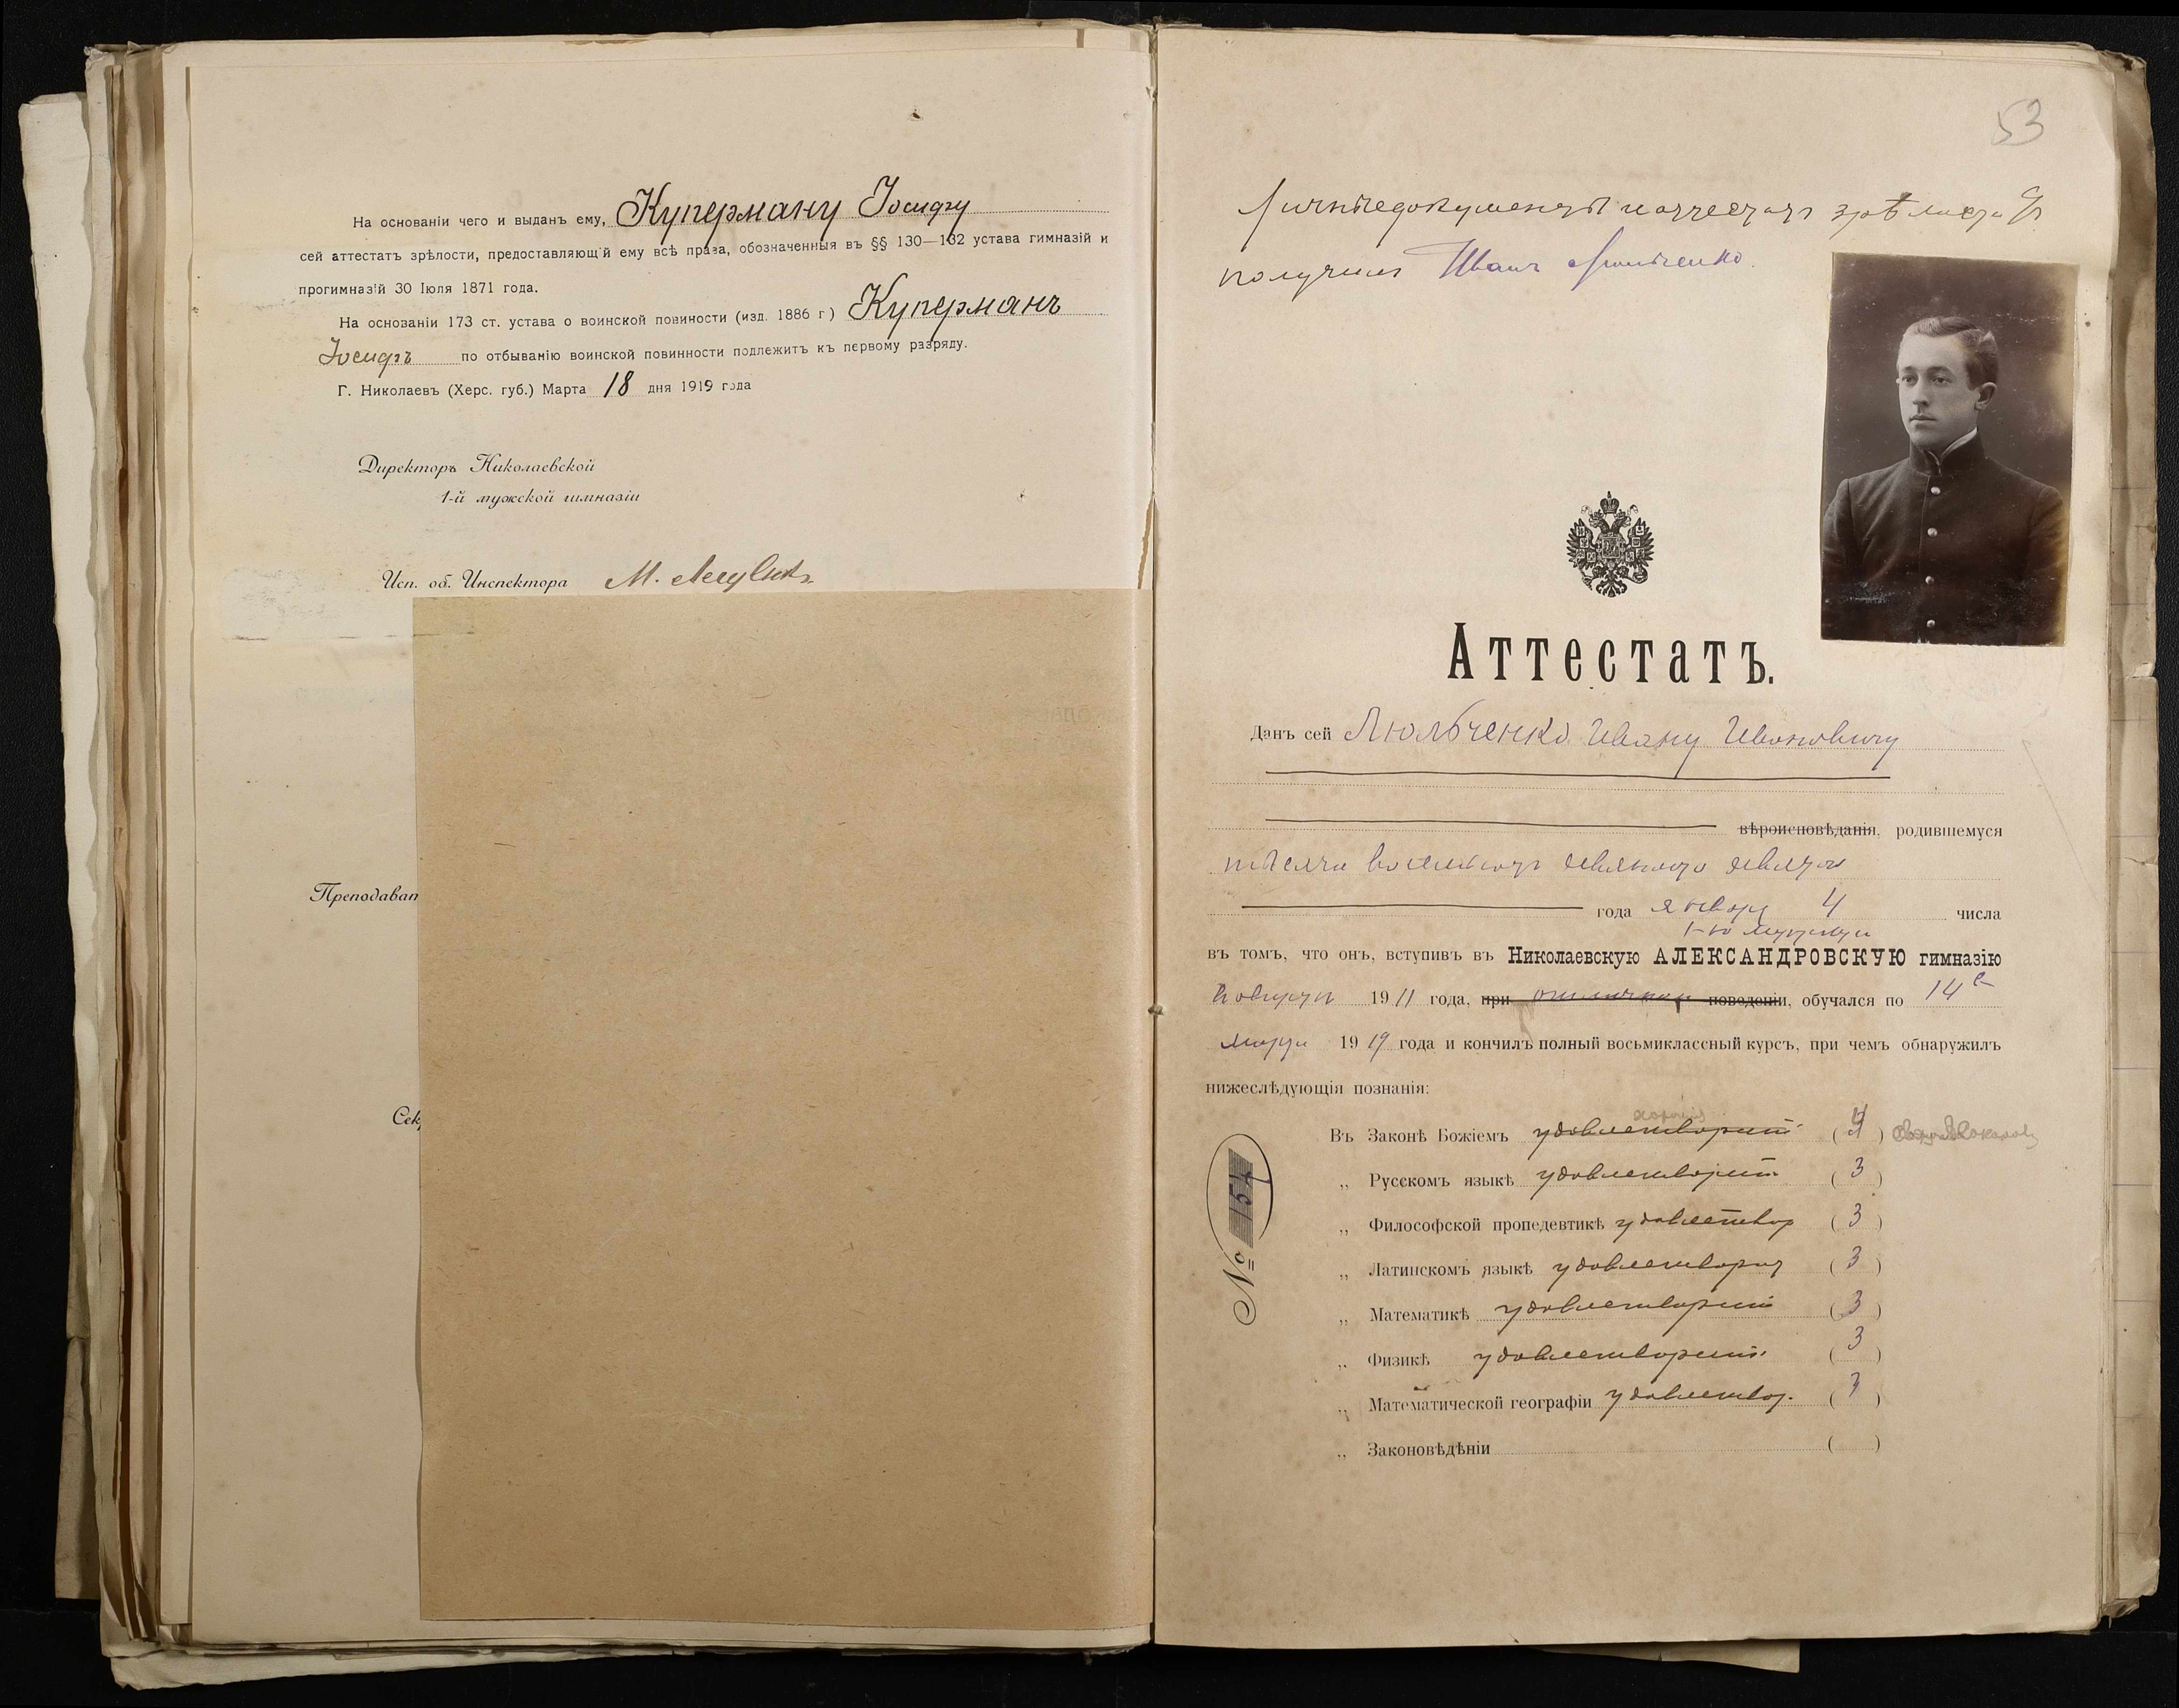 На основаніи чего и выданъ ему, Куперману Іосифу
сей аттестатъ зрѣлости, предоставляющій ему всѣ права, обозначенныя въ §§ 130—132 устава гимназій и
прогимназій 30 Іюля 1871 года.
На основаніи 173 ст. устава о воинской повиности (изд. 1886 г) Куперманъ
Іосифъ по отбыванію воинской повинности подлежитъ къ первому разряду.
Г. Николаевъ (Херс. губ.) Марта 18 дня 1919 года
Директоръ Николаевской
1-й мужской гимназіи
Исп. об. Инспектора М.
Преподават
Сек
53
Личные документы и аттестатъ зрѣлости я
получилъ Иванъ Люльченко.
Аттестатъ.
Данъ сей Люльченко Ивану Ивановичу
вѣроисповѣданія, родившемуся
тысяча восемьсотъ девяносто девятаго
года января 4 числа
1-ю мужскую
въ томъ, что онъ, вступивъ въ Николаевскую АЛЕКСАНДРОВСКУЮ гимназію
1911 года, при отличномъ поведеніи, обучался по 14е
марта 1919 года и кончилъ полный восьмиклассный курсъ, при чемъ обнаружилъ
нижеслѣдующія познанія:
хорошія
Въ Законѣ Божіемъ удовлетворит. (4)
„ Русскомъ языкѣ удовлетворит. (3)
„ Философской пропедевтикѣ удовлетвор (3)
„ Латинскомъ языкѣ удовлетворит (3)
„ Математикѣ удовлетворит (3)
„ Физикѣ удовлетворит. (3)
„ Математической географіи удовлетвор. (3)
„ Законовѣдѣніи ( )
№ 154